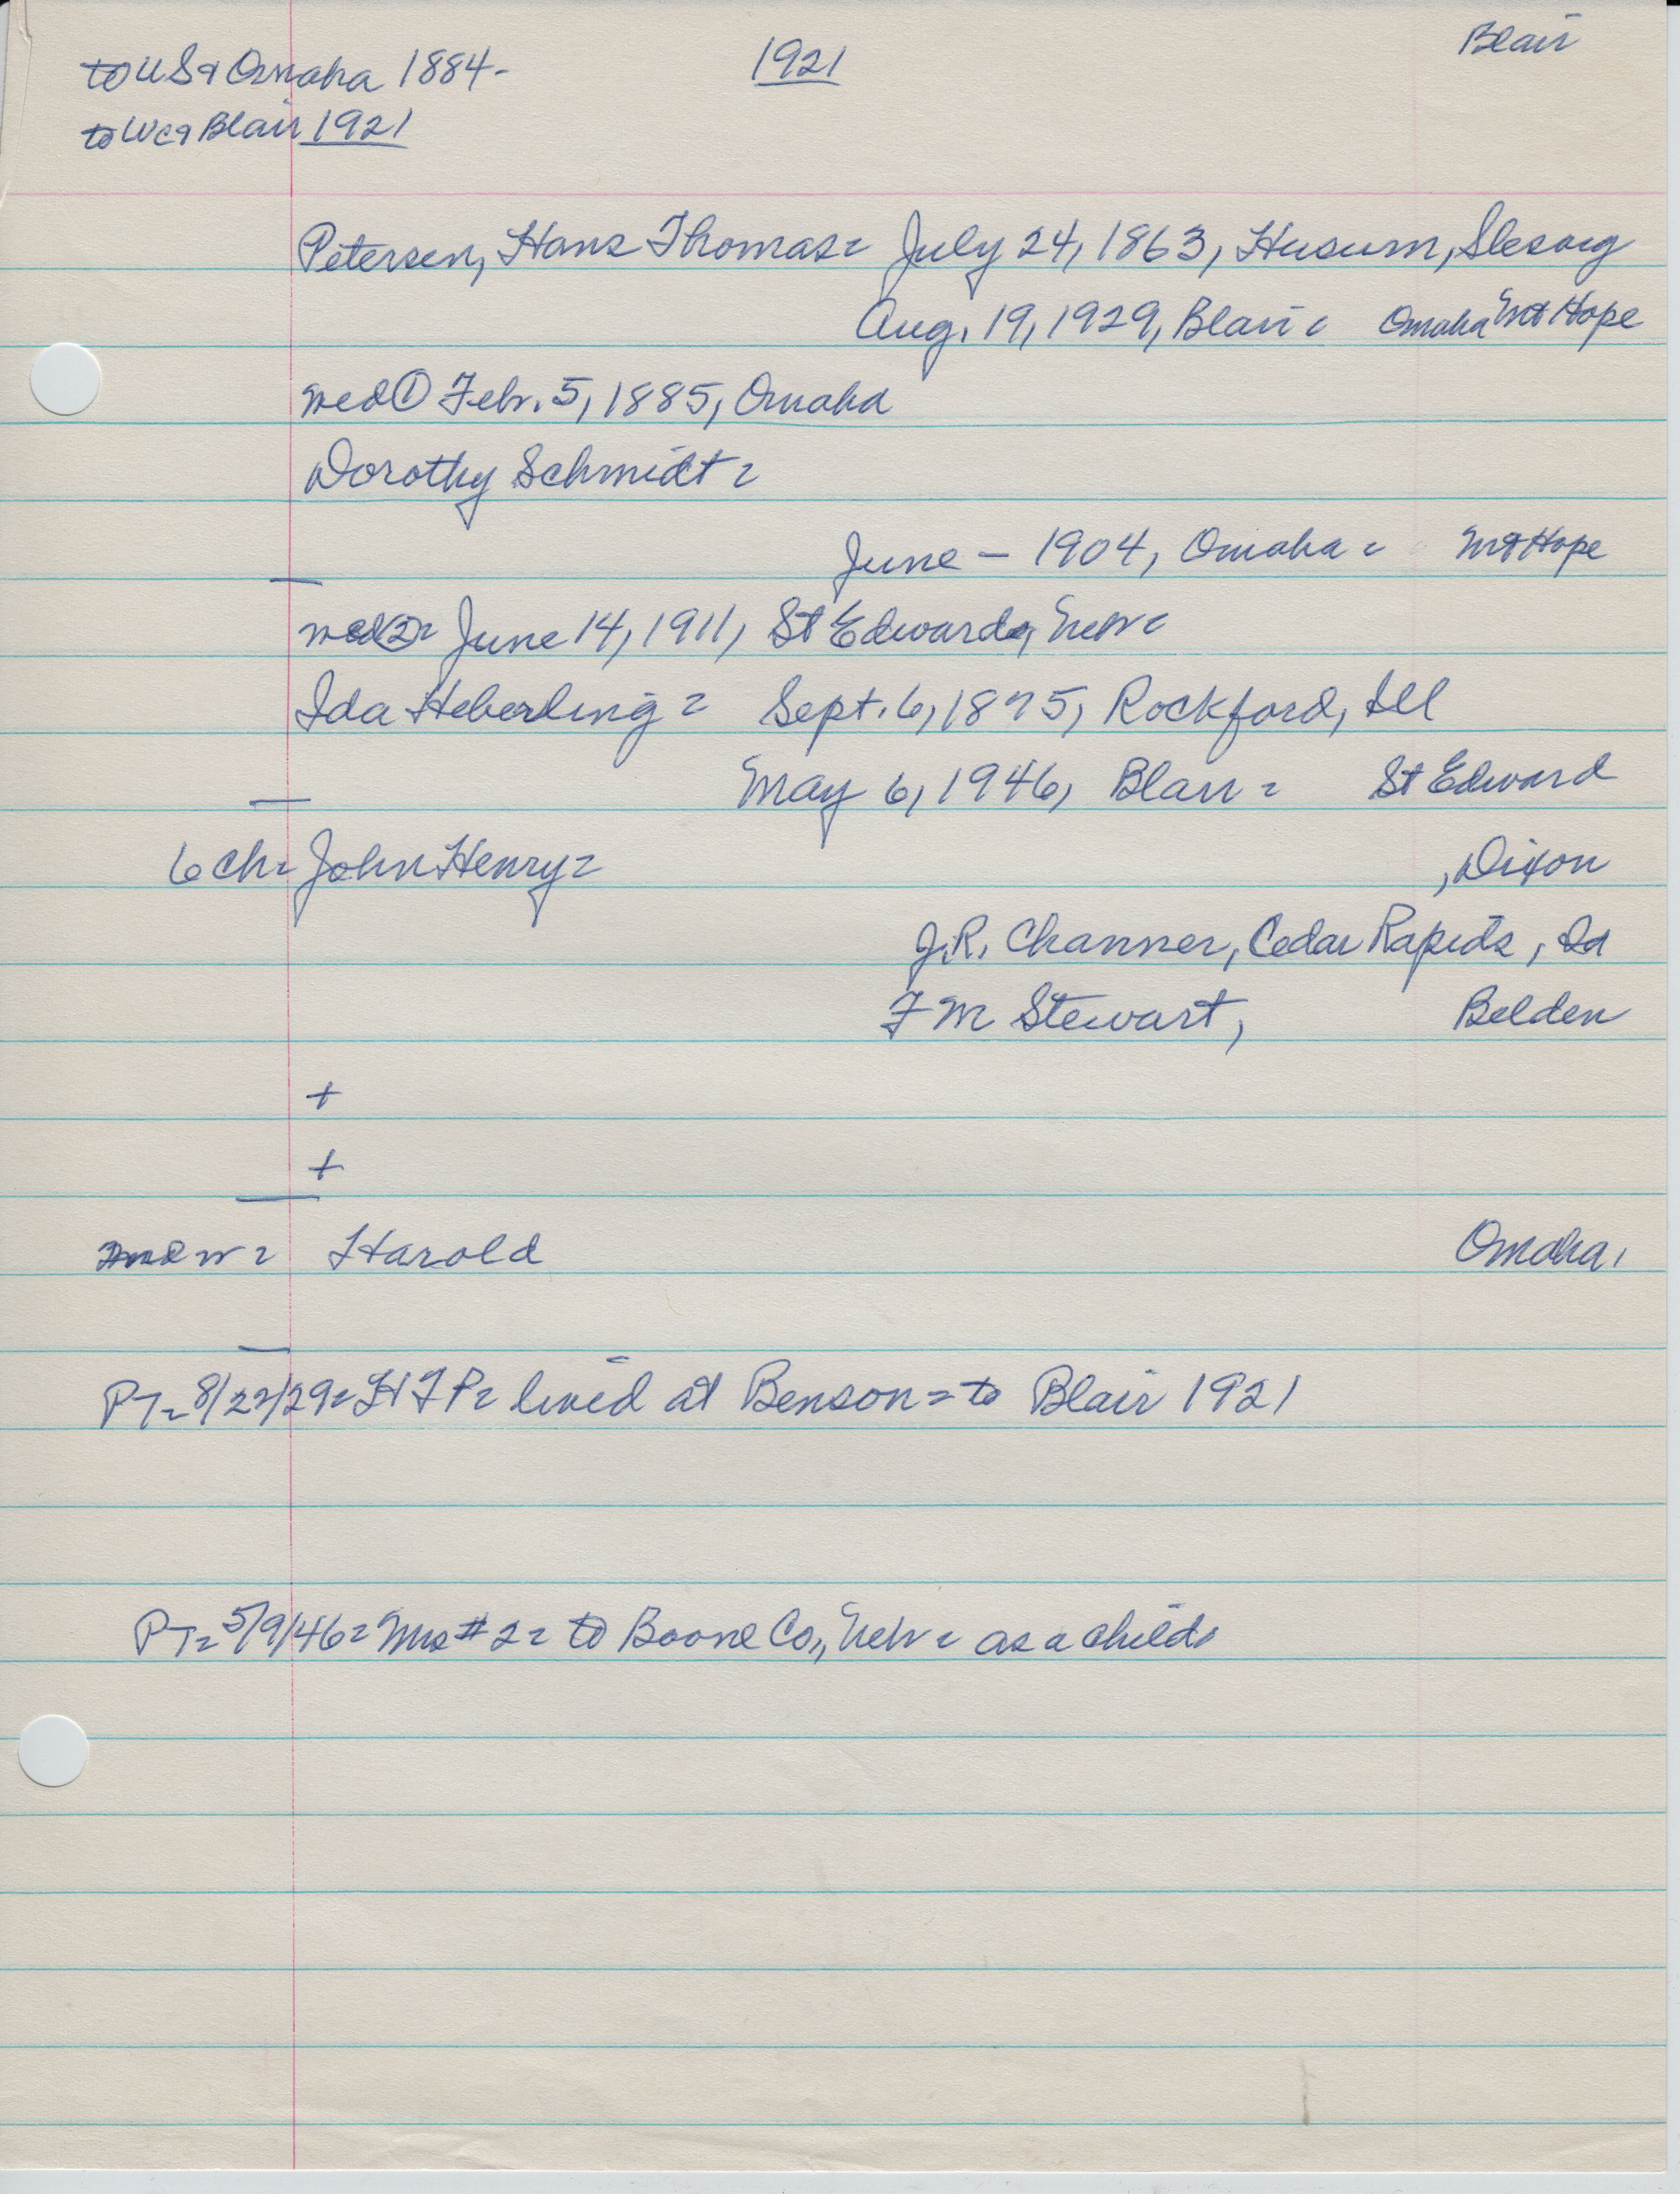 to US & Omaha 1884-
1921
Blair
to WC & Blair 1921
Petersen, Hans Thomas= July 24, 1863, Husum, Slesvig
Aug. 19, 1929, Blair= Omaha Mt Hope
med ① Febr. 5, 1885, Omaha
Dorothy Schmidt=
June - 1904, Omaha= Mt Hope
med ②= June 14, 1911, St Edwards, Nebr=
Ida Heberling= Sept. 6, 1875, Rockford, Ill
May 6, 1946, Blair= St Edward
6 ch= John Henry= , Dixon
J.R. Channer, Cedar Rapids, Ia
F M Stewart, Belden
+
+
Harold Omaha,
PT= 8/22/29= HTP= lived at Benson= to Blair 1921
PT= 5/9/46= Mrs #2= to Boone Co., Nebr= as a child.